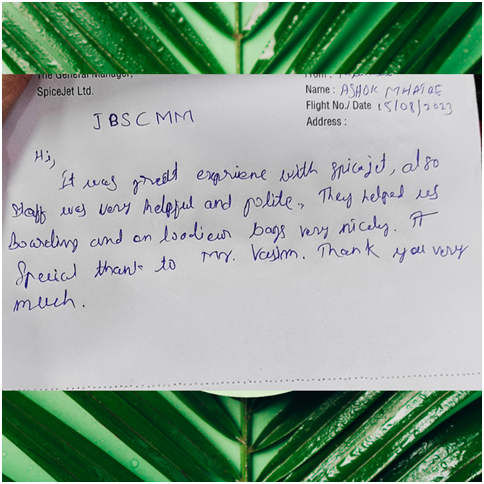 The General Manager,
SpiceJet Ltd.
From :
Name : ASHOK MHATRE
Flight No./ Date 15/08/2023
Address :
JBSCMM
Hi,
It was great expriene with spicejet, also
Staff was very helpful and polite., They helped us
Boarding and on bags very nicely. A
Special thank to Mr. Vasim. Thank you very
much.